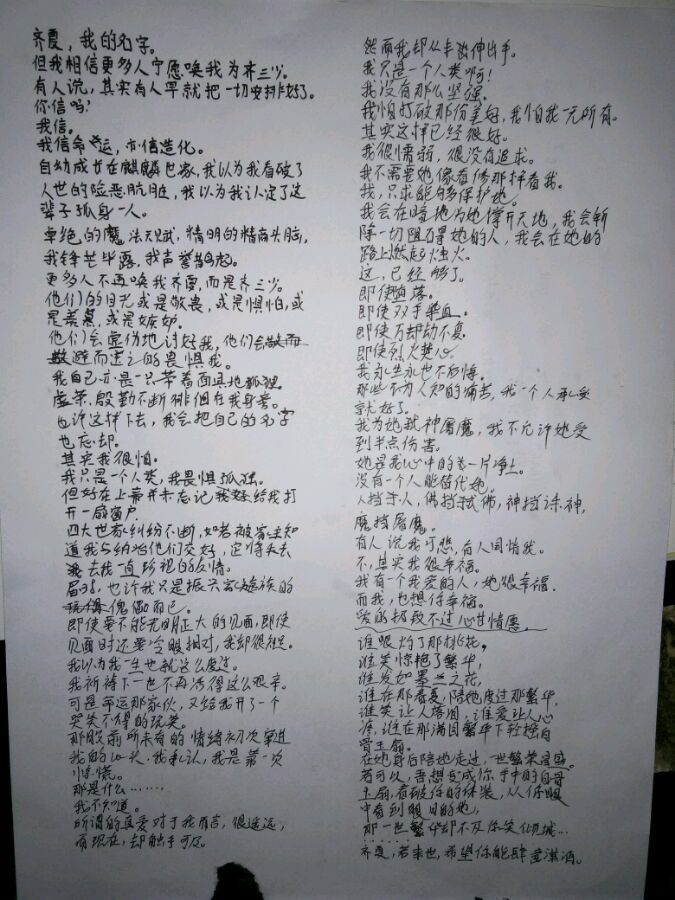 齐夏，我的名字。
但我相信更多人宁愿唤我为齐三少。
有人说，其实有人早就把一切安排好了。
你信吗？
我信。
我信命运，亦信造化。
自幼成长在麒麟世家，我以为我看破了
人世的险恶肮脏，我以为我认定了这
辈子孤身一人。
卓绝的魔法天赋，精明的精商头脑，
我锋芒毕露，我声誉鹊起。
更多人不再唤我齐夏，而是齐三少。
他们的目光或是敬畏，或是惧怕，或
是羡慕，或是嫉妒。
他们会虚伪地讨好我，他们会敬而
避而远之的畏惧我。
我自己亦是一只带着面具地狐狸
虚荣、殷勤不断徘徊在我身旁。
也许这样下去，我会把自己的名字
也忘却。
其实我很怕。
我只是一个人类，我畏惧孤独。
但好在上帝并未忘记我给我打
开一扇窗户。
四大世家纠纷不断，如若被家主知
道我与纳兰他们交好，定将失去
我一直珍视的友情。
届时，也许我只是振兴家族的
傀儡而已。
即使要不能光明正大的见面，即使
见面时还要冷眼相对，我却很满足。
我以为我一生也就这么度过。
我祈祷下一世不再活得这么艰辛。
可是命运那家伙，又给我开了一个
哭笑不得的玩笑。
那股前所未有的情绪初次窜进
我的心头，我承认，我是第一次
惊慌。
那是什么……
我不知道。
所谓的真爱对于我而言，很遥远，
而现在，却触手可及。
然而我却从未敢伸出手。
我只是一个人类啊！
我没有那么坚强。
我怕打破那份美好，我怕我一无所有。
其实这样已经很好。
我很懦弱，很没有追求。
我不需要她像看修那样看我。
我，只求能够保护她。
我会在暗地为她撑开天地，我会斩
除一切阻碍她的人，我会在她的
路上燃起烛火。
这，已经够了。
即使堕落。
即使双手染血。
即使万劫不复。
即使烈火焚心。
我永生永世不后悔。
那些不为人知的痛苦，我一个人承受
就好了。
我为她弑神屠魔，我不允许她受
到半点伤害。
她是我心中的唯一片净土。
没有一个人能替代她。
人挡杀人，佛挡弑佛，神挡诛神，
魔挡屠魔。
有人说我可悲，有人同情我。
不，其实我很幸福。
我有一个我爱的人，她很幸福。
而我，也想你幸福。
终究抵不过心甘情愿。
谁眼灼了那桃花，
谁笑惊艳了繁华，
谁发如墨兰之花，
谁在那看夏，陪她度过那繁华，
谁笑让人落泪，谁爱让人心
疼，谁在那满园繁华下轻摇白
骨玉扇。
在她身后陪她走过，一世繁荣昌盛。
若可以，吾想变成你手中的白骨
玉扇，看破你的伪装，从你眼
中看到眼里的她，
那一世繁华却不及你笑倾城…
……
齐夏，若来世，希望你能肆意潇洒。